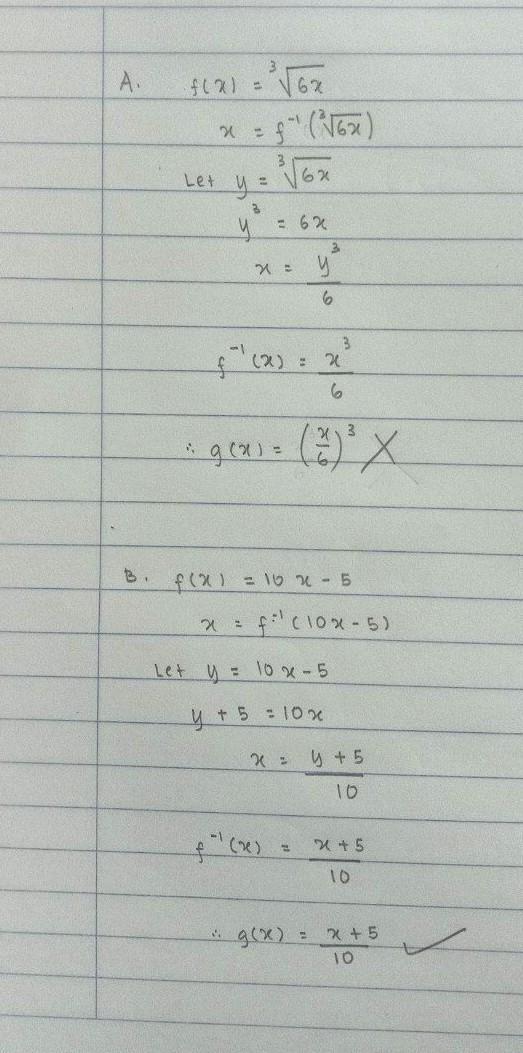 A. f(x) = ³√6x
x = f⁻¹(³√6x)
Let y = ³√6x
y³ = 6x
x = y³/6
f⁻¹(x) = x³/6
∴ g(x) = (x/6)³ ✗
B. f(x) = 10x - 5
x = f⁻¹(10x - 5)
Let y = 10x - 5
y + 5 = 10x
x = y + 5/10
f⁻¹(x) = x + 5/10
∴ g(x) = x + 5/10 ✓